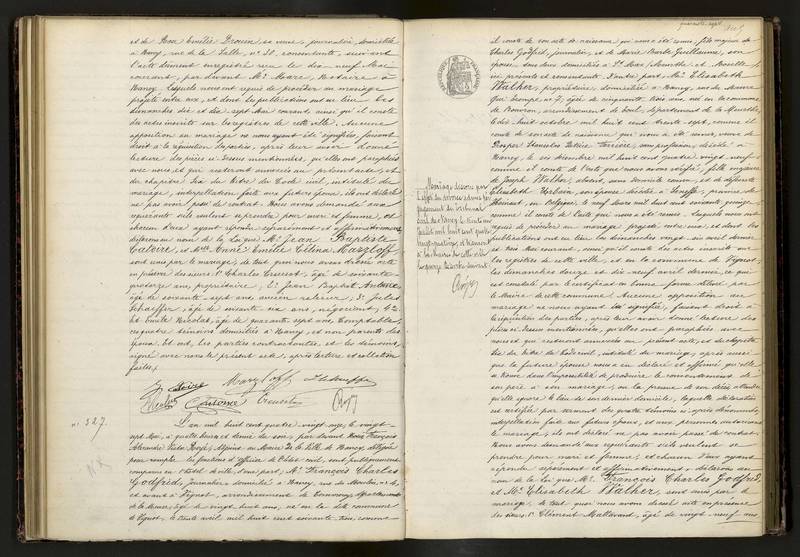 et de Rosa Emélie Drouin, sa veuve, journalière, domiciliée
à Nancy, rue de la Salle, n° 28, consentante, suivant
l'acte dûment enregistré reçu le dix-neuf Mai
courant, par devant Me Marc, Notaire à
Nancy. Lesquels nous ont requis de procéder au mariage
projeté entre eux, et dont les publications ont eu lieu les
dimanches dix et dix sept Mai courant, ainsi qu'il conste
des actes inscrits sur les registres de cette ville. Aucune
opposition au mariage ne nous ayant été signifiée, faisant
droit à la réquisition des parties, après leur avoir donné
lecture des pièces ci-dessus mentionnées, qu'elles ont paraphées
avec nous, et qui resteront annexées au présent acte, et
du chapitre six du titre du Code civil, intitulé du
mariage, interpellation faite aux futurs époux, ils ont déclaré
ne pas avoir passé de contrat. Nous avons demandé aux
requérants s'ils veulent se prendre pour mari et femme, et
chacun d'eux ayant répondu séparément et affirmativement,
déclarons au nom de la loi que Mr Jean Baptiste
et Émélie Ellina Marzloff
sont unis par le mariage, de tout quoi nous avons dressé acte
en présence des sieurs 1° Charles âgé de soixante-
quatorze ans, propriétaire, 2° Jean Baptiste Antoine,
âgé de soixante-sept ans, ancien relieur, 3° Jules
Schaeffer, âgé de soixante six ans, négociant, 4°
Émile Nicolas, âgé de quarante sept ans, Comptable,
ces quatre témoins domiciliés à Nancy et non parents des
époux. Et ont, les parties contractantes et les témoins,
signé avec nous le présent acte, après lecture et collation
faites.
Marzloff Schaeffer
Nicolas Antoine
n° 327.
L'an mil huit cent quatre-vingt onze, le vingt-
sept Mai, à quatre heures et demie du soir, par devant Nous François
Adjoint au Maire de la Ville de Nancy, délégué
pour remplir les fonctions d'officier de l'état civil, sont publiquement
comparus en l'hôtel de ville, d'une part, Mr François Charles
Godfrid, journalier, domicilié à Nancy, rue du Moulin, n° 4,
et avant à Vignot, arrondissement de Commercy, département
de la Meuse, âgé de vingt huit ans, né en la dite commune
de Vignot, le trente avril mil huit cent soixante-trois, comme
il conste de son acte de naissance qui nous a été remis, fils majeur de
Charles Godfrid, journalier, et de Marie Barbe Guillaume, son
épouse, tous deux domiciliés à St Max (Meurthe et Moselle),
ici présents et consentants. D'autre part, Mlle Elisabeth
Walher, propriétaire, domiciliée à Nancy, rue de Maure
qui trompe n° 7, âgée de cinquante trois ans, née en la commune
de département de la Meurthe,
le dix-huit octobre mil huit cent trente-sept, comme il
conste de son acte de naissance qui nous a été remis, veuve de
Prosper Stanislas sans profession, décédé à
Nancy, le six décembre mil huit cent quatre vingt neuf,
comme il conste de l'acte que nous avons vérifié, fille majeure
de Joseph Walher, absent, sans domicile connu, et de défunte
Elisabeth son épouse, décédée à province de
Hainaut, en Belgique, le neuf mars mil huit cent soixante quinze,
comme il conste de l'acte qui nous a été remis. Lesquels nous ont
requis de procéder au mariage projeté entre eux, et dont les
publications ont eu lieu les dimanches vingt six avril dernier
et trois Mai courant, ainsi qu'il conste des actes inscrits sur
les registres de cette ville, et en la commune de Vignot,
les dimanches douze et dix-neuf avril dernier, ce qui
est constaté par le certificat en bonne forme délivré par
le Maire de cette commune. Aucune opposition au
mariage ne nous ayant été signifiée, faisant droit à
la réquisition des parties, après leur avoir donné lecture des
pièces ci-dessus mentionnées, qu'elles ont paraphées avec
nous et qui resteront annexées au présent acte, et du chapitre
six du titre du Code civil, intitulé du mariage, après aussi
que la future épouse nous a eu déclaré et affirmé qu'elle
se trouve dans l'impossibilité de produire le consentement de
son père à son mariage, ou la preuve de son décès, attendu
qu'elle ignore le lieu de son dernier domicile, laquelle déclaration
est certifiée par serment des quatre témoins ci-après dénommés,
interpellation faite aux futurs époux, et aux personnes autorisant
le mariage, ils ont déclaré ne pas avoir passé de contrat.
Nous avons demandé aux requérants s'ils veulent se
prendre pour mari et femme, et chacun d'eux ayant
répondu séparément et affirmativement, déclarons au
nom de la loi que Mr François Charles Godfrid,
et Mlle Elisabeth Walher, sont unis par le
mariage, de tout quoi nous avons dressé acte en présence
des sieurs 1° Clément âgé de vingt-neuf ans
Mariage dissous par
jugement du tribunal